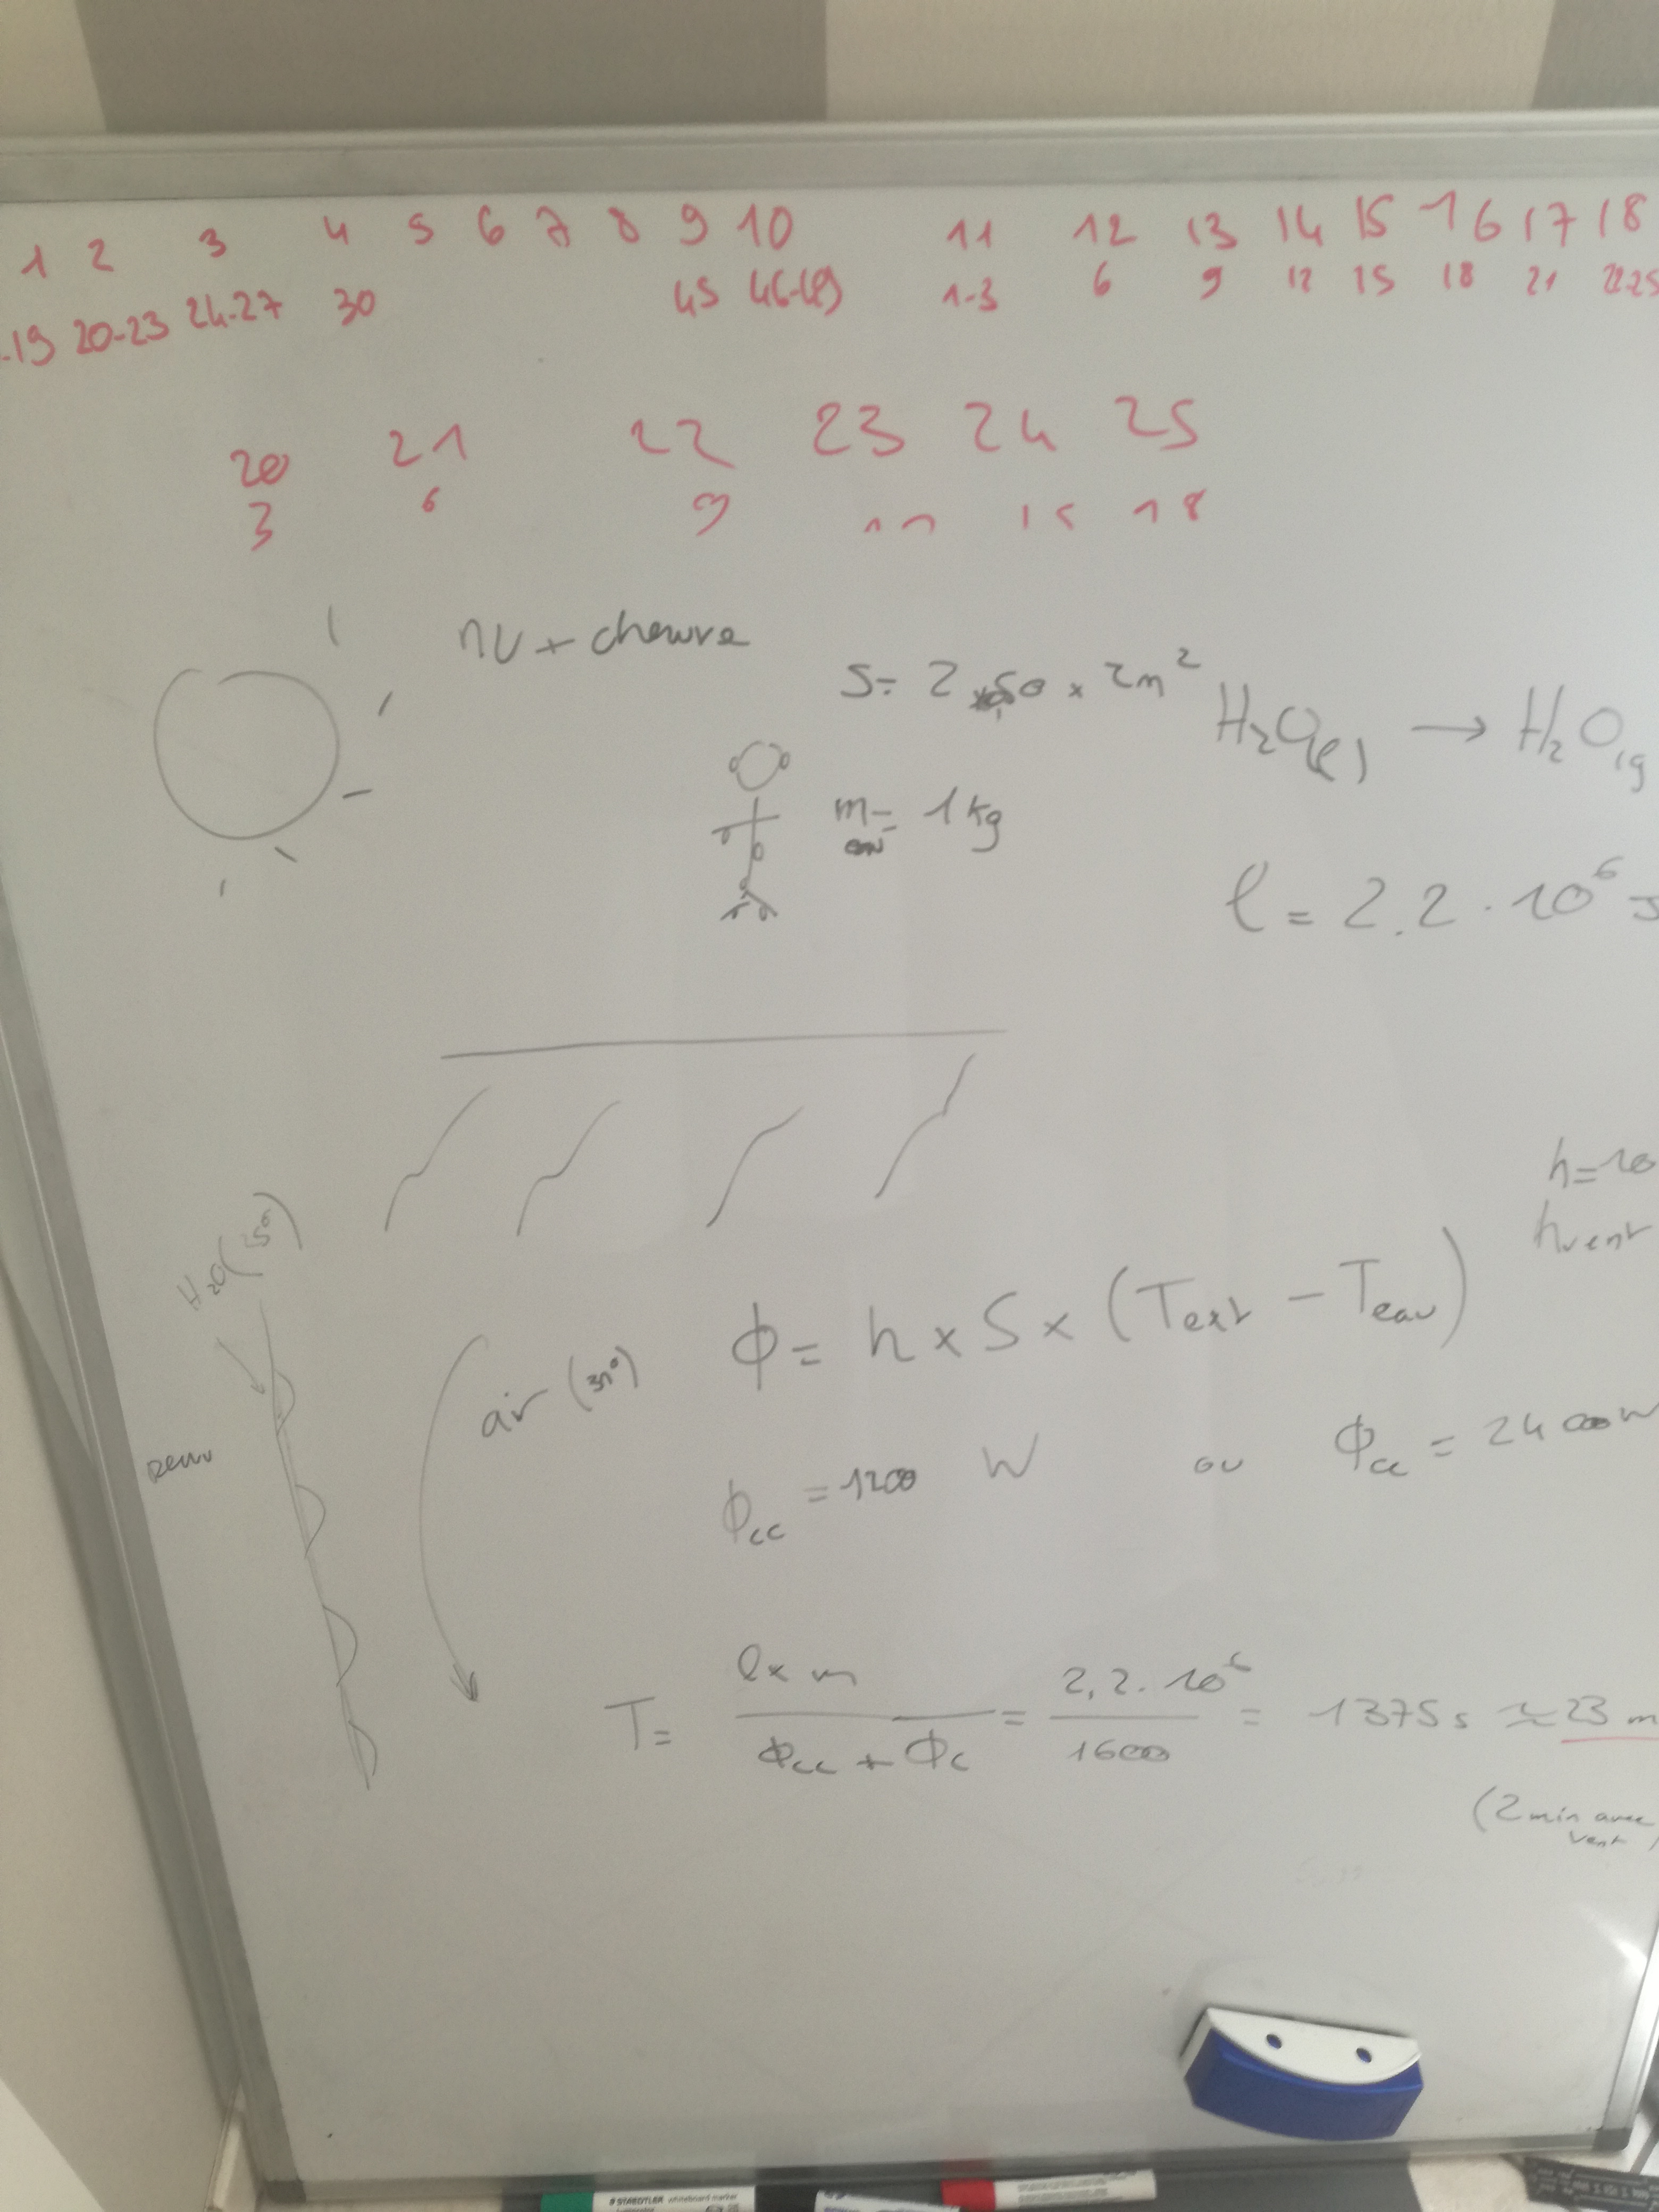 1 2 3 4 5 6 7 8 9 10 11 12 13 14 15 16 17 18
-19 20-23 24-27 30 45 46-49 1-3 6 9 12 15 18 21 22-25
20 21 22 23 24 25
3 6 9 15 18
nu + chauve
S= 2 × 50 × 2m²
H₂O(l) → H₂O(g
m= 1 kg
eau
l = 2.2 . 10⁶ J
h=10
hvent
H₂O(25°)
ϕ = h × S × (Text - Teau)
air (30°)
peau
ϕcc = 1200 W ou ϕcc = 24000W
T= l × m / ϕcc + ϕc = 2,2. 10⁶ / 1600 = 1375 s ≈ 23 m
(2 min avec
vent)
STAEDTLER whiteboard marker